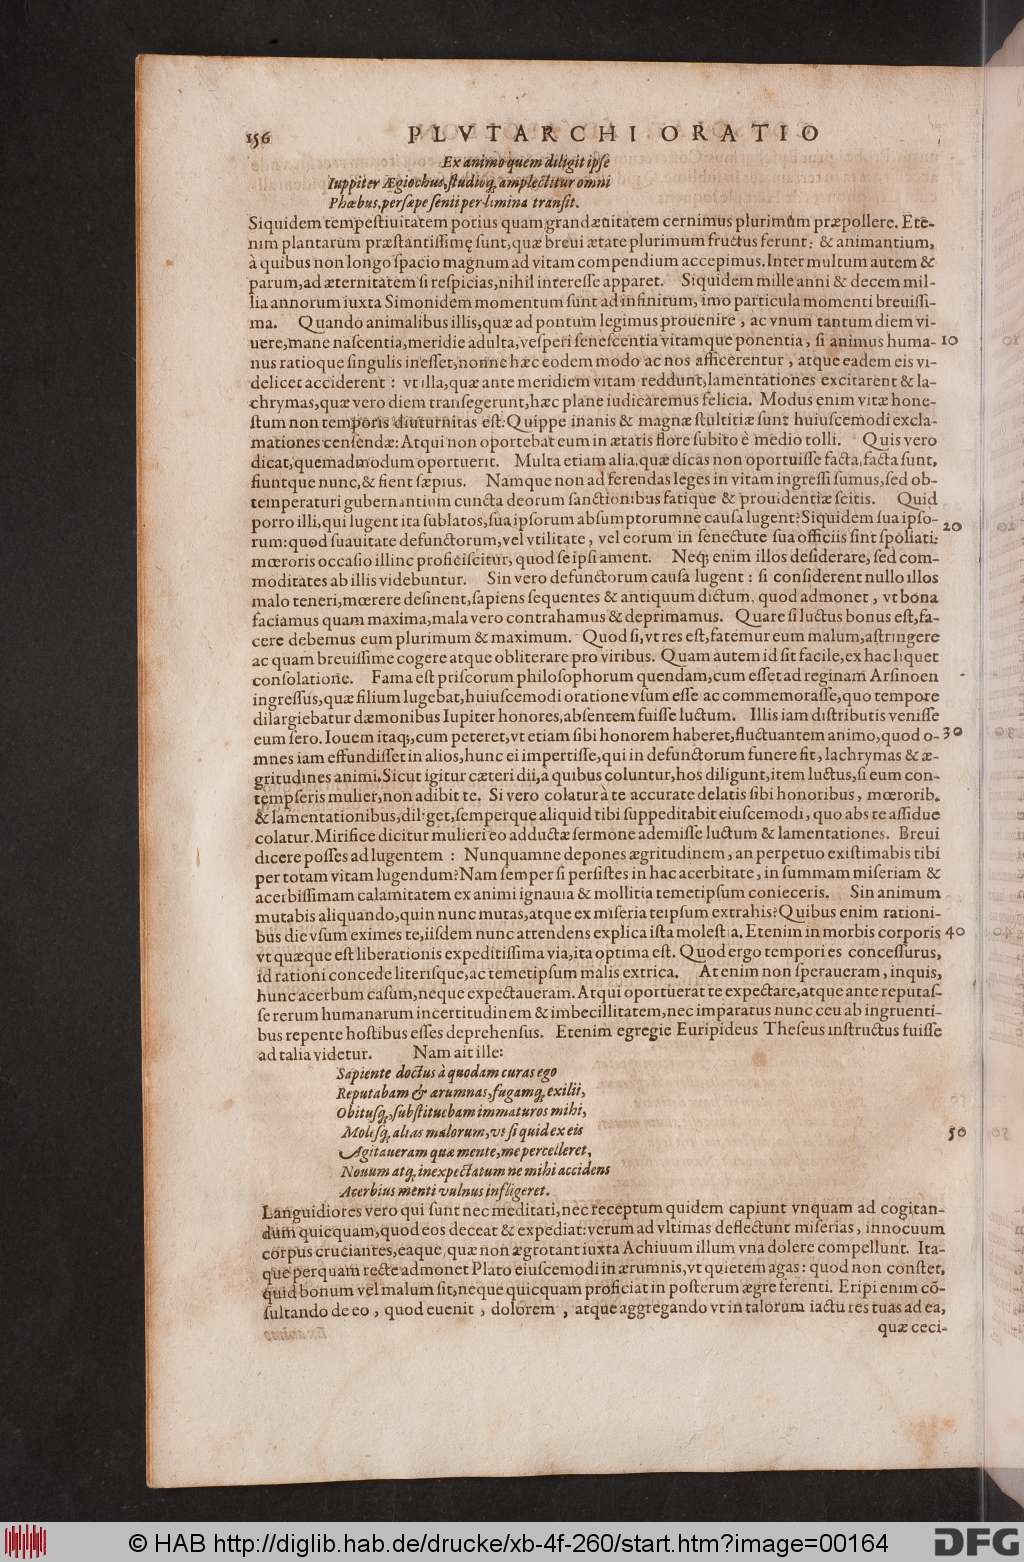 156
PLVTARCHI ORATIO
Ex animo quem diligit ipse
Iuppiter Ægiochus, studioq; amplectitur omni
Phœbus, persæpe senii per limina transit.
Siquidem tempestiuitatem potius quam grandæuitatem cernimus plurimùm præpollere. Ete-
nim plantarum præstantissimę sunt, quæ breui ætate plurimum fructus ferunt: & animantium,
à quibus non longo spacio magnum ad vitam compendium accepimus. Inter multum autem &
parum, ad æternitatem si respicias, nihil interesse apparet. Siquidem mille anni & decem mil-
lia annorum iuxta Simonidem momentum sunt ad infinitum, imo particula momenti breuissi-
ma. Quando animalibus illis, quæ ad pontum legimus prouenire, ac vnum tantum diem vi-
uere, mane nascentia, meridie adulta, vesperi senescentia vitamque ponentia, si animus huma- 10
nus ratioque singulis inesset, nonne hæc eodem modo ac nos afficerentur, atque eadem eis vi-
delicet acciderent: vt illa, quæ ante meridiem vitam reddunt, lamentationes excitarent & la-
chrymas, quæ vero diem transegerunt, hæc plane iudicaremus felicia. Modus enim vitæ hone-
stum non temporis diuturnitas est: Quippe inanis & magnæ stultitiæ sunt huiuscemodi excla-
mationes censendæ: Atqui non oportebat eum in ætatis flore subito è medio tolli. Quis vero
dicat, quemadmodum oportuerit. Multa etiam alia, quæ dicas non oportuisse facta, facta sunt,
fiuntque nunc, & fient sæpius. Namque non ad ferendas leges in vitam ingressi sumus, sed ob-
temperaturi gubernantium cuncta deorum sanctionibus fatique & prouidentiæ scitis. Quid
porro illi, qui lugent ita sublatos, sua ipsorum absumptorumne causa lugent? Siquidem sua ipso- 20
rum: quod suauitate defunctorum, vel vtilitate, vel eorum in senectute sua officiis sint spoliati:
mœroris occasio illinc proficiscitur, quod se ipsi ament. Neq; enim illos desiderare, sed com-
moditates ab illis videbuntur. Sin vero defunctorum causa lugent: si considerent nullo illos
malo teneri, mœrere desinent, sapiens sequentes & antiquum dictum, quod admonet, vt bona
faciamus quam maxima, mala vero contrahamus & deprimamus. Quare si luctus bonus est, fa-
cere debemus eum plurimum & maximum. Quod si, vt res est, fatemur eum malum, astringere
ac quam breuissime cogere atque obliterare pro viribus. Quam autem id sit facile, ex hac liquet
consolatione. Fama est priscorum philosophorum quendam, cum esset ad reginam Arsinoen
ingressus, quæ filium lugebat, huiuscemodi oratione vsum esse ac commemorasse, quo tempore
dilargiebatur dæmonibus Iupiter honores, absentem fuisse luctum. Illis iam distributis venisse
eum sero. Iouem itaq;, cum peteret, vt etiam sibi honorem haberet, fluctuantem animo, quod o- 30
mnes iam effundisset in alios, hunc ei impertisse, qui in defunctorum funere fit, lachrymas & æ-
gritudines animi. Sicut igitur cæteri dii, à quibus coluntur, hos diligunt, item luctus, si eum con-
tempseris mulier, non adibit te. Si vero colatur à te accurate delatis sibi honoribus, mœrorib.
& lamentationibus, diliget, semperque aliquid tibi suppeditabit eiuscemodi, quo abs te assidue
colatur. Mirifice dicitur mulieri eo adductæ sermone ademisse luctum & lamentationes. Breui
dicere posses ad lugentem: Nunquamne depones ægritudinem, an perpetuo existimabis tibi
per totam vitam lugendum? Nam semper si persistes in hac acerbitate, in summam miseriam &
acerbissimam calamitatem ex animi ignauia & mollitia temetipsum conieceris. Sin animum
mutabis aliquando, quin nunc mutas, atque ex miseria teipsum extrahis? Quibus enim rationi-
bus die vsum eximes te, iisdem nunc attendens explica ista molestia. Etenim in morbis corporis 40
vt quæque est liberationis expeditissima via, ita optima est. Quod ergo tempori es concessurus,
id rationi concede literisque, ac temetipsum malis extrica. At enim non speraueram, inquis,
hunc acerbum casum, neque expectaueram. Atqui oportuerat te expectare, atque ante reputas-
se rerum humanarum incertitudinem & imbecillitatem, nec imparatus nunc ceu ab ingruenti-
bus repente hostibus esses deprehensus. Etenim egregie Euripideus Theseus instructus fuisse
ad talia videtur. Nam ait ille:
Sapiente doctus à quodam curas ego
Reputabam & ærumnas, fugamq; exilii,
Obitusq;, substituebam immaturos mihi,
Molesq; alias malorum, vt si quid ex eis 50
Agitaueram quæ mente, me percelleret,
Nouum atq; inexpectatum ne mihi accidens
Acerbius menti vulnus infligeret.
Languidiores vero qui sunt nec meditati, nec receptum quidem capiunt vnquam ad cogitan-
dum quicquam, quod eos deceat & expediat: verum ad vltimas deflectunt miserias, innocuum
corpus cruciantes, eaque, quæ non ægrotant iuxta Achiuum illum vna dolere compellunt. Ita-
que perquam recte admonet Plato eiuscemodi in ærumnis, vt quietem agas: quod non constet,
quid bonum vel malum sit, neque quicquam proficiat in posterum ægre ferenti. Eripi enim cõ-
sultando de eo, quod euenit, dolorem, atque aggregando vt in talorum iactu res tuas ad ea,
quæ ceci-
© HAB http://diglib.hab.de/drucke/xb-4f-260/start.htm?image=00164
DFG